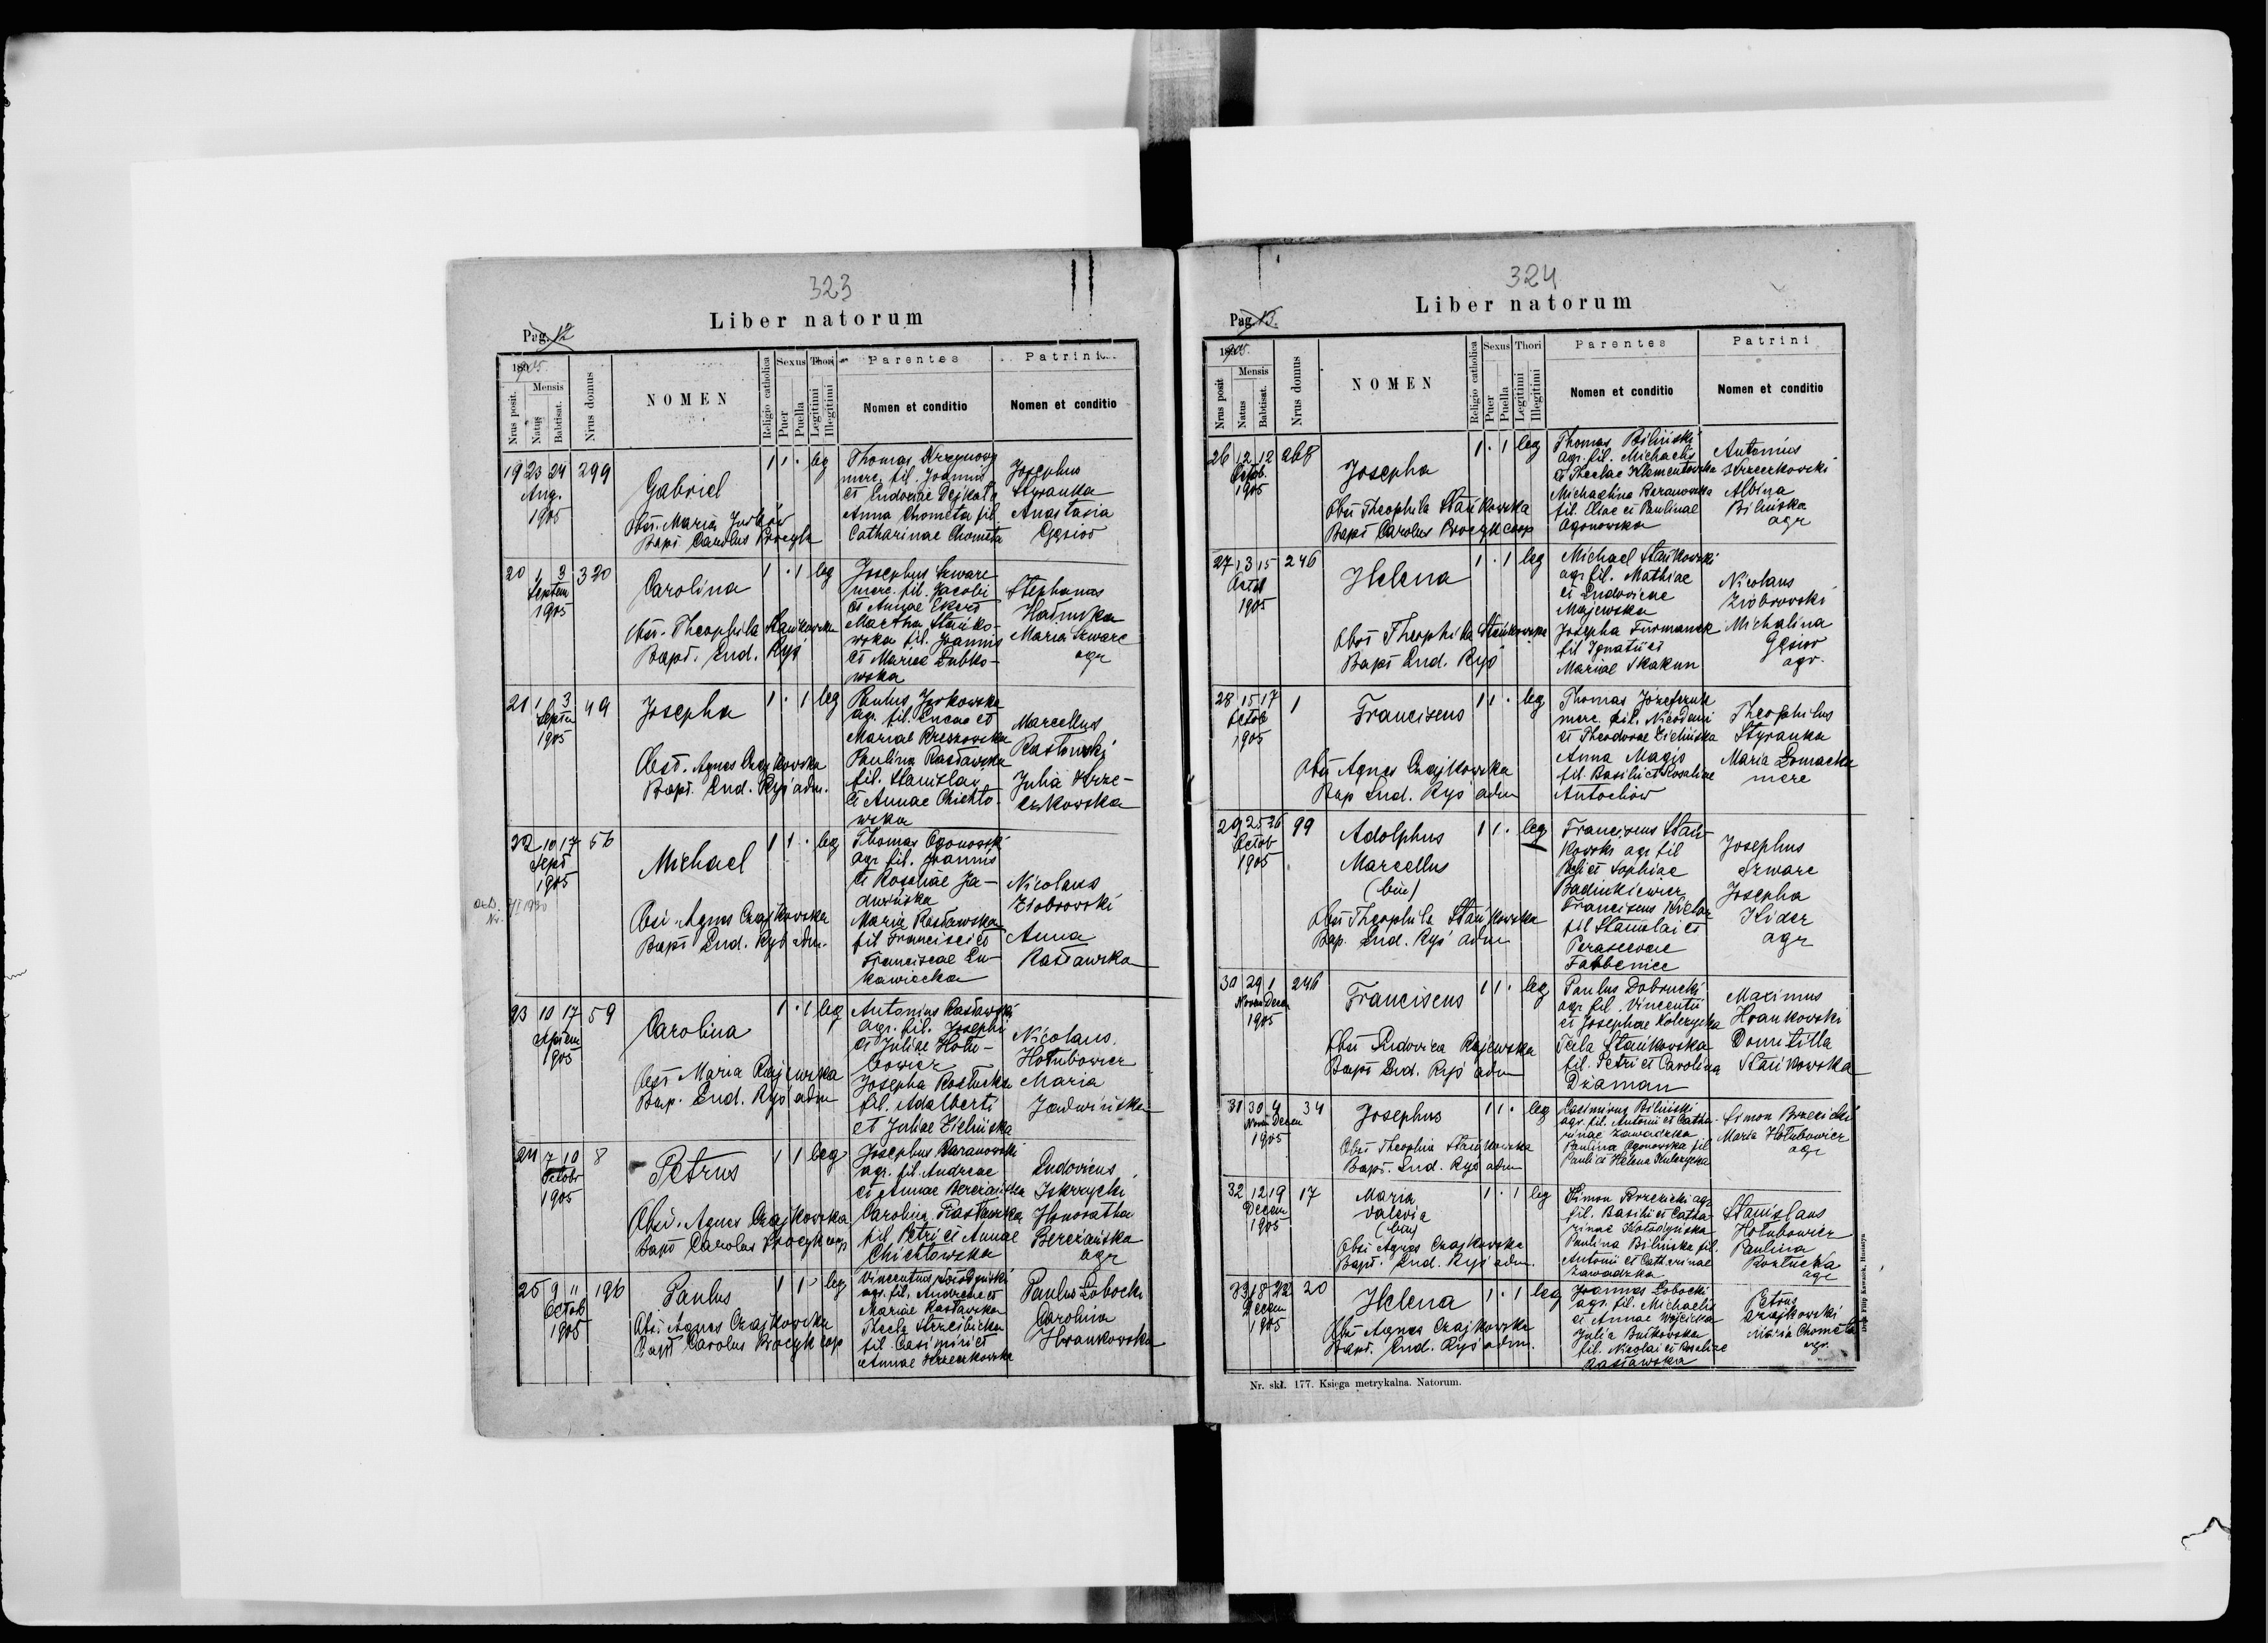 323
Liber natorum
Pag. 12
1905.
Nrus posit.
Mensis
Natus
Babtisat.
Nrus domus
NOMEN
Religio catholica
Sexus
Puer
Puella
Thori
Legitimi
Illegitimi
Parentes
Nomen et conditio
Patrini
Nomen et conditio
19 23 24 299
Aug.
1905
Gabriel
Obst. Maria
Bapt. Carolus Procyk
1 1 . leg
Thomas
merc. fil. Joannis
et Eudoxiae Dejkało
Anna Chometa fil.
Catharinae Chometa
Josephus
Styranka
Anastasia
Gąsior
20 1 3 320
Septem
1905
Carolina
Obst. Theophila Stańkowska
Bapt. Lud. Ryś
1 . 1 leg
Josephus Szwarc
merc. fil. Jacobi
et Annae Ekert
Martha Stańko-
wska fil. Joannis
et Mariae Dubko-
wska
Stephanus
Maria Szwarc
agr
21 1 3 49
Septem
1905
Josepha
Obst. Agnes Czajkowska
Bapt. Lud. Ryś adm.
1 . 1 leg
Paulus
agr. fil. Lucae et
Mariae
Paulina Rastawska
fil. Stanislai
et Annae Chichło-
wska
Marcellus
Rastawski
Julia Strze-
czkowska
22 10 17 56
Sept
1905
Michael
Obst. Agnes Czajkowska
Bapt. Lud. Ryś adm.
1 1 . leg
Thomas Ogonowski
agr fil. Joannis
et Rosaliae Ja-
dwińska
Maria Rastawska
fil Francisci et
Franciscae Lu-
kawiecka
Nicolaus
Ziobrowski
Anna
Rastawska
23 10 17 59
Septem
1905
Carolina
Obst Maria Rajewska
Bap. Lud. Ryś adm
1 . 1 leg
Antonius Rastawski
agr. fil. Josephi
et Juliae Hołu-
bowicz
Josepha Rostucka
fil. Adalberti
et Juliae Zielińska
Nicolaus
Hołubowicz
Maria
Jadwińska
24 7 10 8
Octobr
1905
Petrus
Obst. Agnes Czajkowska
Bapt Carolus Procyk coop
1 1 leg
Josephus Baranowski
agr. fil. Andreae
et Annae Bereżańska
Carolina Rastawska
fil Petri et Annae
Chichłowska
Ludovicus
Iskrzycki
Honoratha
Bereżańska
agr
25 9 11 196
Octob
1905
Paulus
Obst. Agnes Czajkowska
Bapt Carolus Procyk coop
1 1 . leg
Vincentius
agr. fil. Andreae et
Mariae Rastawska
Thecla
fil. Casimiri et
Annae Strzeczkowska
Paulus Łobocki
Carolina
Hrankowska
324
Liber natorum
Pag. 13.
1905.
Nrus posit
Mensis
Natus
Babtisat.
Nrus domus
NOMEN
Religio catholica
Sexus
Puer
Puella
Thori
Legitimi
Illegitimi
Parentes
Nomen et conditio
Patrini
Nomen et conditio
26 12 12 268
Octob.
1905
Josepha
Obst Theophila Stańkowska
Bapt Carolus Procyk coop
1 . 1 leg
Thomas Biliński
agr. fil. Michaelis
et Theclae Klementowska
Michaelina Baranowska
fil. Eliae et Paulinae
Ogonowska
Antonius
Strzeczkowski
Albina
Bilińska
agr
27 13 15 246
Octob
1905
Helena
Obst Theophila Stańkowska
Bapt Lud. Ryś
1 . 1 leg
Michael Stańkowski
agr fil. Mathiae
et Ludovicae
Majewska
Josepha Furmanek
fil Ignatii et
Mariae Skakun
Nicolaus
Ziobrowski
Michalina
Gąsior
agr.
28 15 17 1
Octob
1905
Franciscus
Obst Agnes Czajkowska
Bap Lud. Ryś adm
1 1 . leg
Thomas Józefczuk
merc. fil. Nicodemi
et Theodorae Zielińska
Anna Magis
fil. Basilii et Rosaliae
Antochów
Theophilus
Styranka
Maria Domacka
merc
29 25 26 99
Octob
1905
Adolphus
Marcellus
(bin)
Obst Theophila Stańkowska
Bap. Lud. Ryś adm
1 1 . leg
Franciscus Stań-
kowski agr fil
et Sophiae
fil Stanislai et
Parascevae
Josephus
Szwarc
Josepha
Kider
agr
30 29 1 246
Novem Decem
1905
Franciscus
Obst Ludovica Rajewska
Bapt Lud. Ryś adm
1 1 . leg
Paulus Dobrucki
agr fil. Vincentii
et Josephae Kolczycka
Tecla Stańkowska
fil. Petri et Carolina
Diaman
Maximus
Hrankowski
Domitilla
Stańkowska
31 30 4 34
Novem Decem
1905
Josephus
Obst Theophila Stańkowska
Bapt. Lud. Ryś adm
1 1 . leg
Casimirus Biliński
agr. fil. Antonii et Catha-
rinae Zawadzka
Paulina Ogonowska fil
Pauli et Helena Kulczycka
Simon Brzezicki
Maria Hołubowicz
agr
32 12 19 17
Decem
1905
Maria
Valeria
(bin)
Obst Agnes Czajkowska
Bapt. Lud. Ryś adm.
1 . 1 leg
Simon Brzezicki agr
fil. Basilii et Catha-
rinae Kołodyńska
Paulina Bilińska fil.
Antonii et Catharinae
Zawadzka
Stanislaus
Hołubowicz
Paulina
Roztucka
agr
33 18 22 20
Decem
1905
Helena
Obst Agnes Czajkowska
Bapt. Lud. Ryś adm.
1 . 1 leg
Joannes Łobocki
agr. fil. Michaelis
et Annae Wójcicka
Julia Butkowska
fil. Nicolai et Rosaliae
Rastawska
Petrus
Czajkowski
Maria Chometa
agr.
Nr. skł. 177. Księga metrykalna. Natorum.